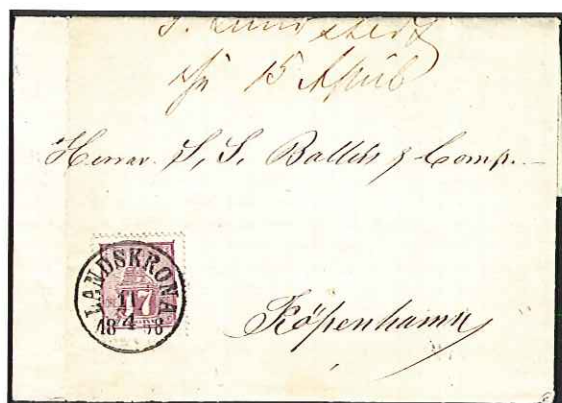 15 April
Herrar S. S. Ballin & Comp.
LANDSKRONA
17
4
18 68
Köpenhamn